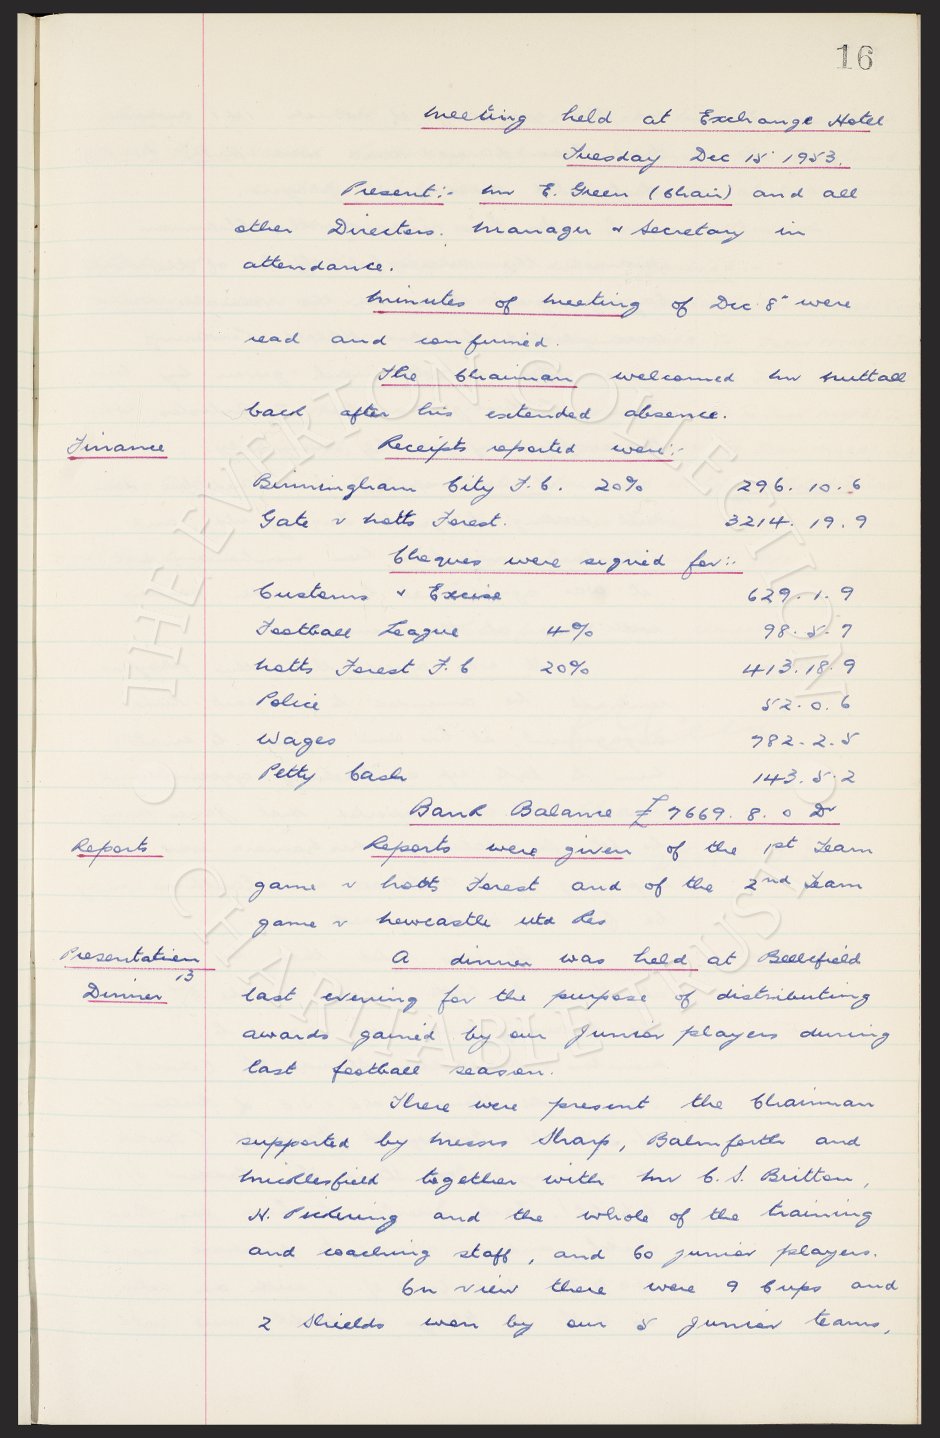 16
Meeting held at Exchange Hotel
Tuesday Dec 15 1953.
Present:- Mr E. Green (Chair) and all
other Directors. Manager & Secretary in
attendance.
Minutes of meeting of Dec 8" were
read and confirmed.
The Chairman welcomed Mr Nuttall
back after his extended absence.
Finance Receipts reported were:-
Birmingham City F.C. 20% 296. 10. 6
Gate v Notts Forest. 3214. 19. 9
Cheques were signed for:-
Customs & Excise 629. 1. 9
Football League 4% 98. 5. 7
Notts Forest F.C 20% 413. 18. 9
Police 52. 0. 6
Wages 782. 2. 5
Petty Cash 143. 5. 2
Bank Balance £7669. 8. 0 Dr
Reports Reports were given of the 1st Team
game v Notts Forest and of the 2nd Team
game v Newcastle Utd Res
Presentation A dinner was held at Bellefield
Dinner 13 last evening for the purpose of distributing
awards gained by our Junior players during
last football season.
There were present the Chairman
supported by Messrs Sharp, Balmforth and
Micklesfield together with Mr C. S. Britton,
H. Pickering and the whole of the training
and coaching staff, and 60 junior players.
On view there were 9 Cups and
2 Shields won by our 5 Junior teams,
THE EVERTON COLLECTION
CHARITABLE TRUST